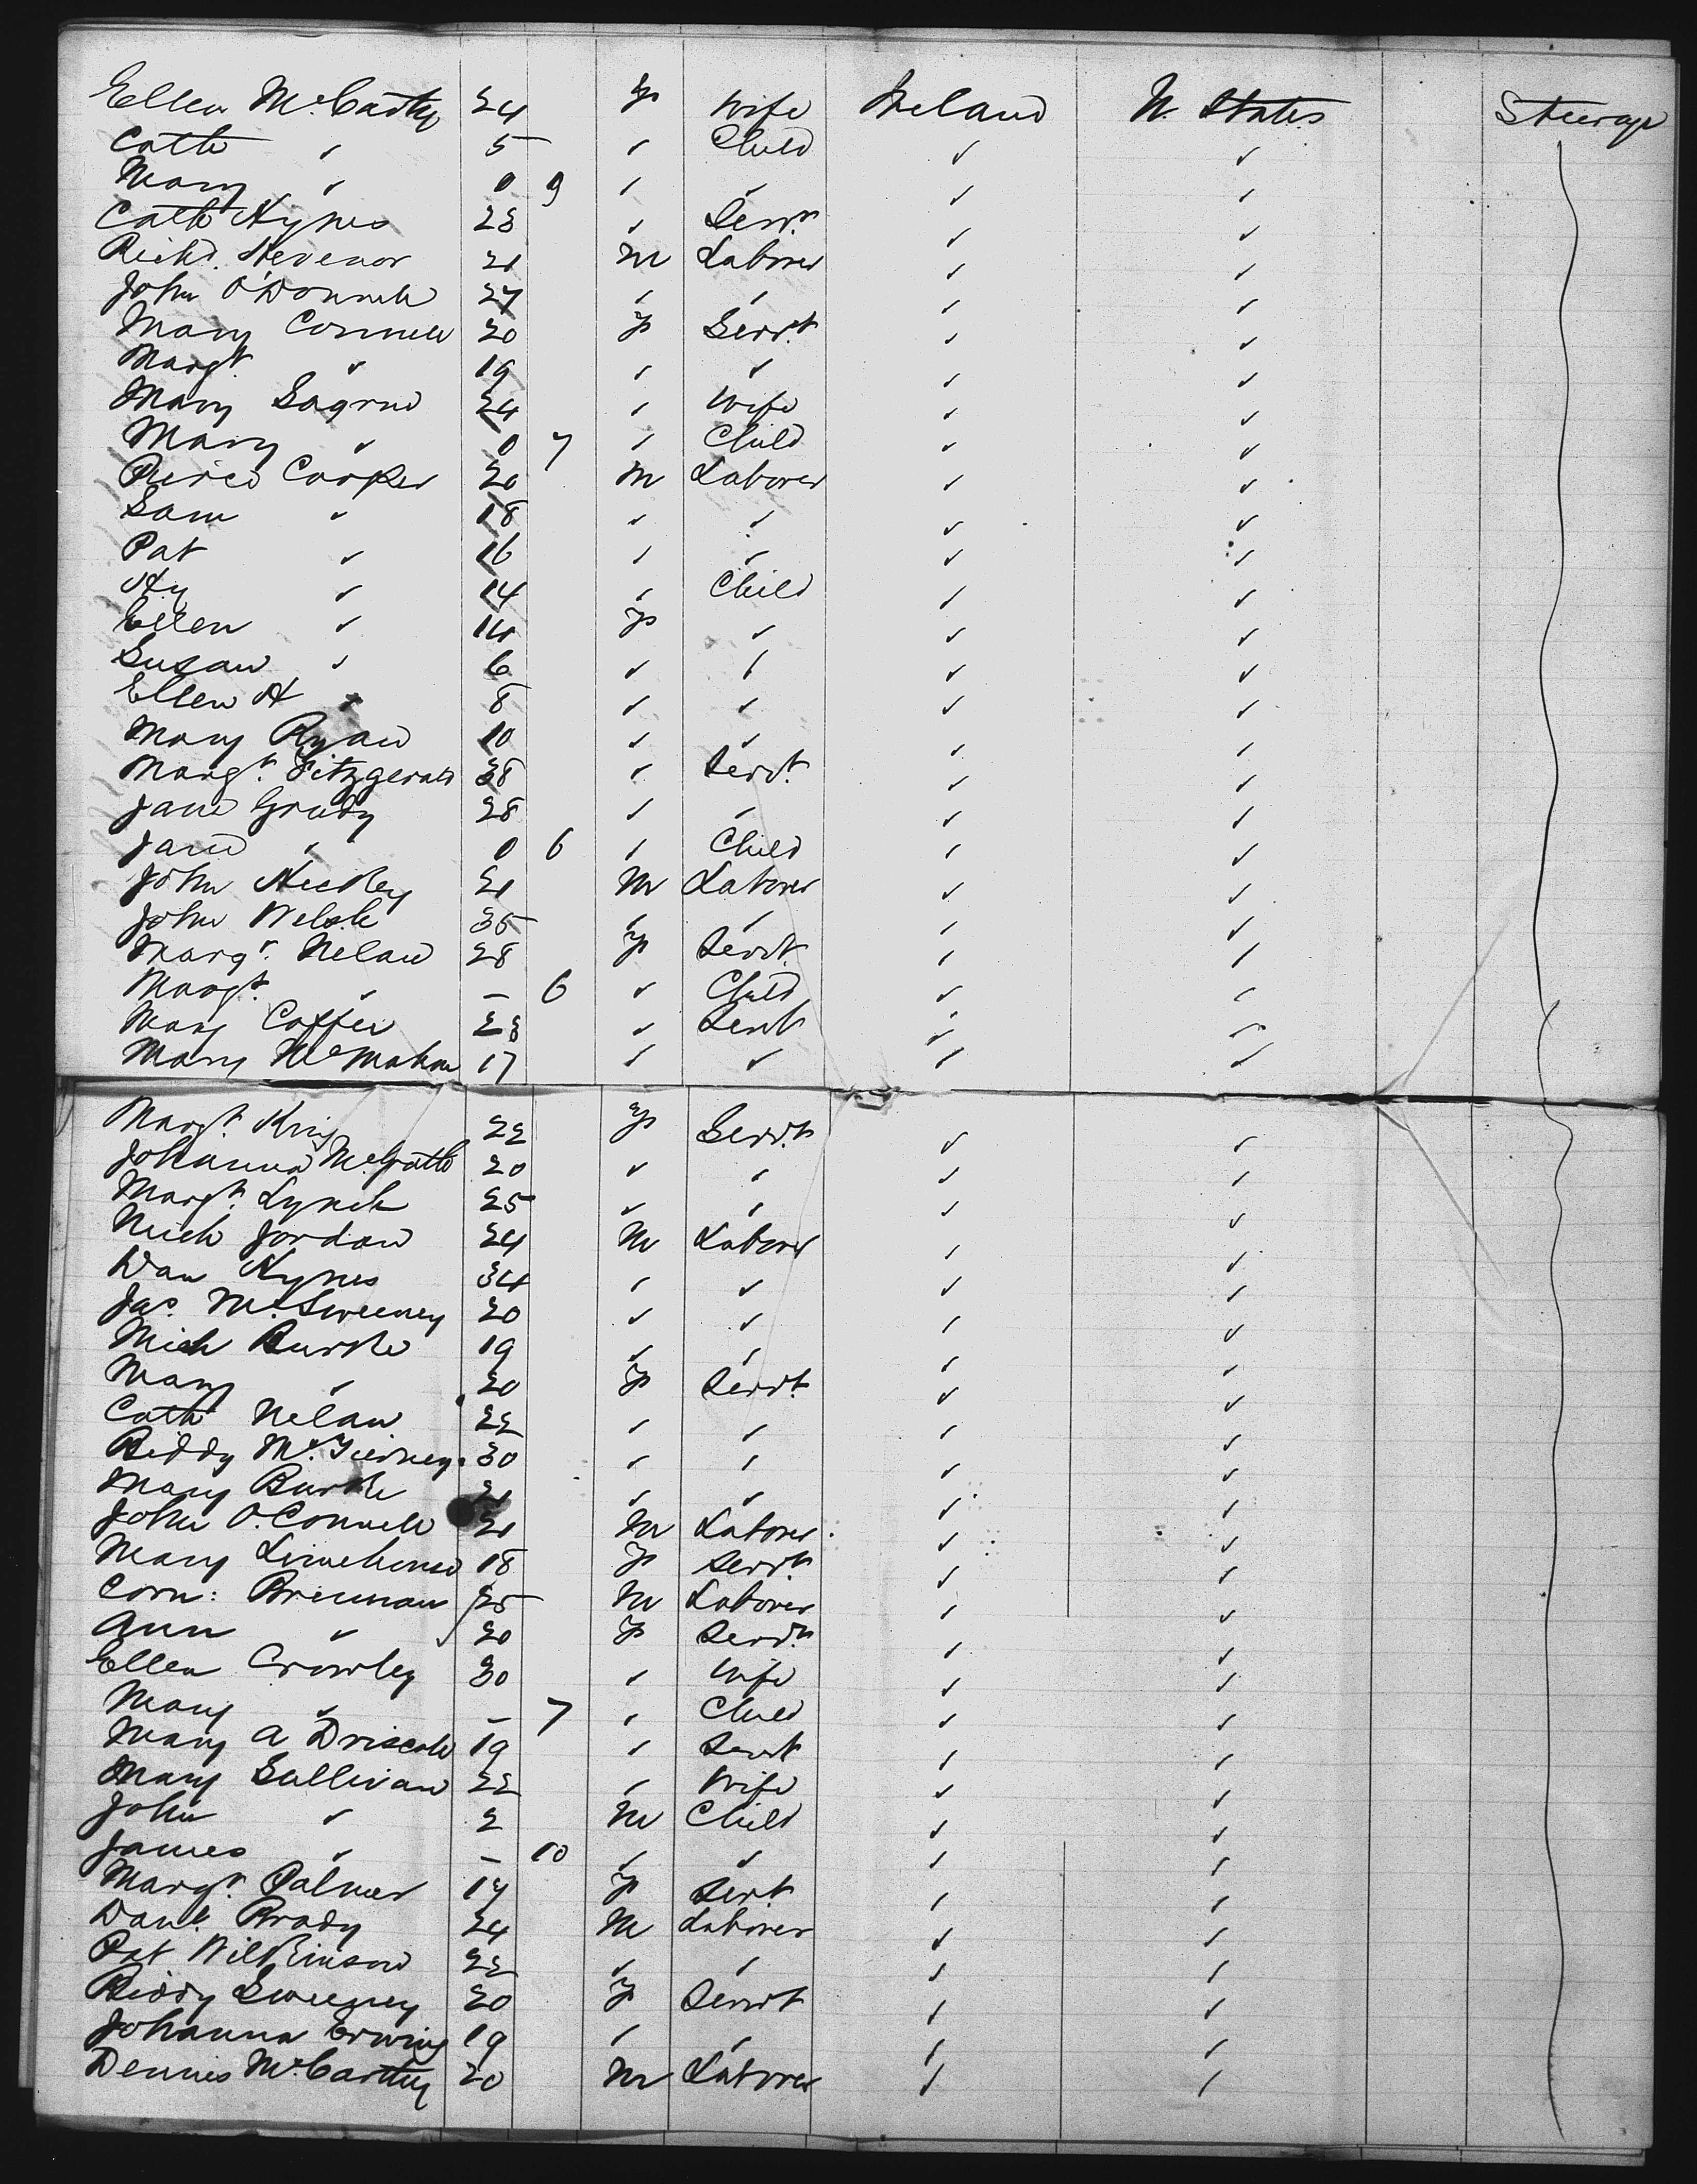 Ellen McCarthy 24 F Wife Ireland U. States Steerage
Cath " 5 " Child " "
Mary " 0 9 " " " "
Cath Hynes 23 " Servt " "
Richd. 21 M Laborer " "
John O'Donnell 27 " " " "
Mary Connell 20 F Servt " "
Margt. " 19 " " " "
Mary 24 " Wife " "
Mary " 0 7 " Child " "
Pierce Cooper 20 M Laborer " "
Sam " 18 " " " "
Pat " 16 " " " "
Hy " 14 " Child " "
Ellen " 14 F " " "
Susan " 6 " " " "
Ellen H " 8 " " " "
Mary Ryan 10 " " " "
Margt. Fitzgerald 38 " Servt. " "
Jane Grady 28 " " " "
Jane " 0 6 " Child " "
John Hickey 21 M Laborer " "
John Welsh 35 " " " "
Margt. Nelan 28 F Servt. " "
Margt. " – 6 " Child " "
Mary Coffee 23 " Servt " "
Mary McMahon 17 " " " "
Margt. King 22 F Servt. " "
Johanna McGrath 20 " " " "
Margt. Lynch 25 " " " "
Mich Jordan 24 M Laborer " "
Dan Hynes 34 " " " "
Jas. McSweeney 20 " " " "
Mich Burke 19 " " " "
Mary " 20 F Servt. " "
Cath Nelan 22 " " " "
Biddy McTierney 30 " " " "
Mary Burke 21 " " " "
John O'Connell 21 M Laborer " "
Mary 18 F Servt " "
Corn: Brennan 25 M Laborer " "
Ann " 20 F Servt. " "
Ellen Crowley 30 " Wife " "
Mary " – 7 " Child " "
Mary A Driscoll 19 " Servt " "
Mary Sullivan 22 " Wife " "
John " 2 M Child " "
James " – 10 " " " "
Margt. Palmer 17 F Servt " "
Danl. Brady 24 M Laborer " "
Pat Wilkinson 22 " " " "
Biddy Sweeney 20 F Servt " "
Johanna Erwing 19 " " " "
Dennis McCarthy 20 M Laborer " "